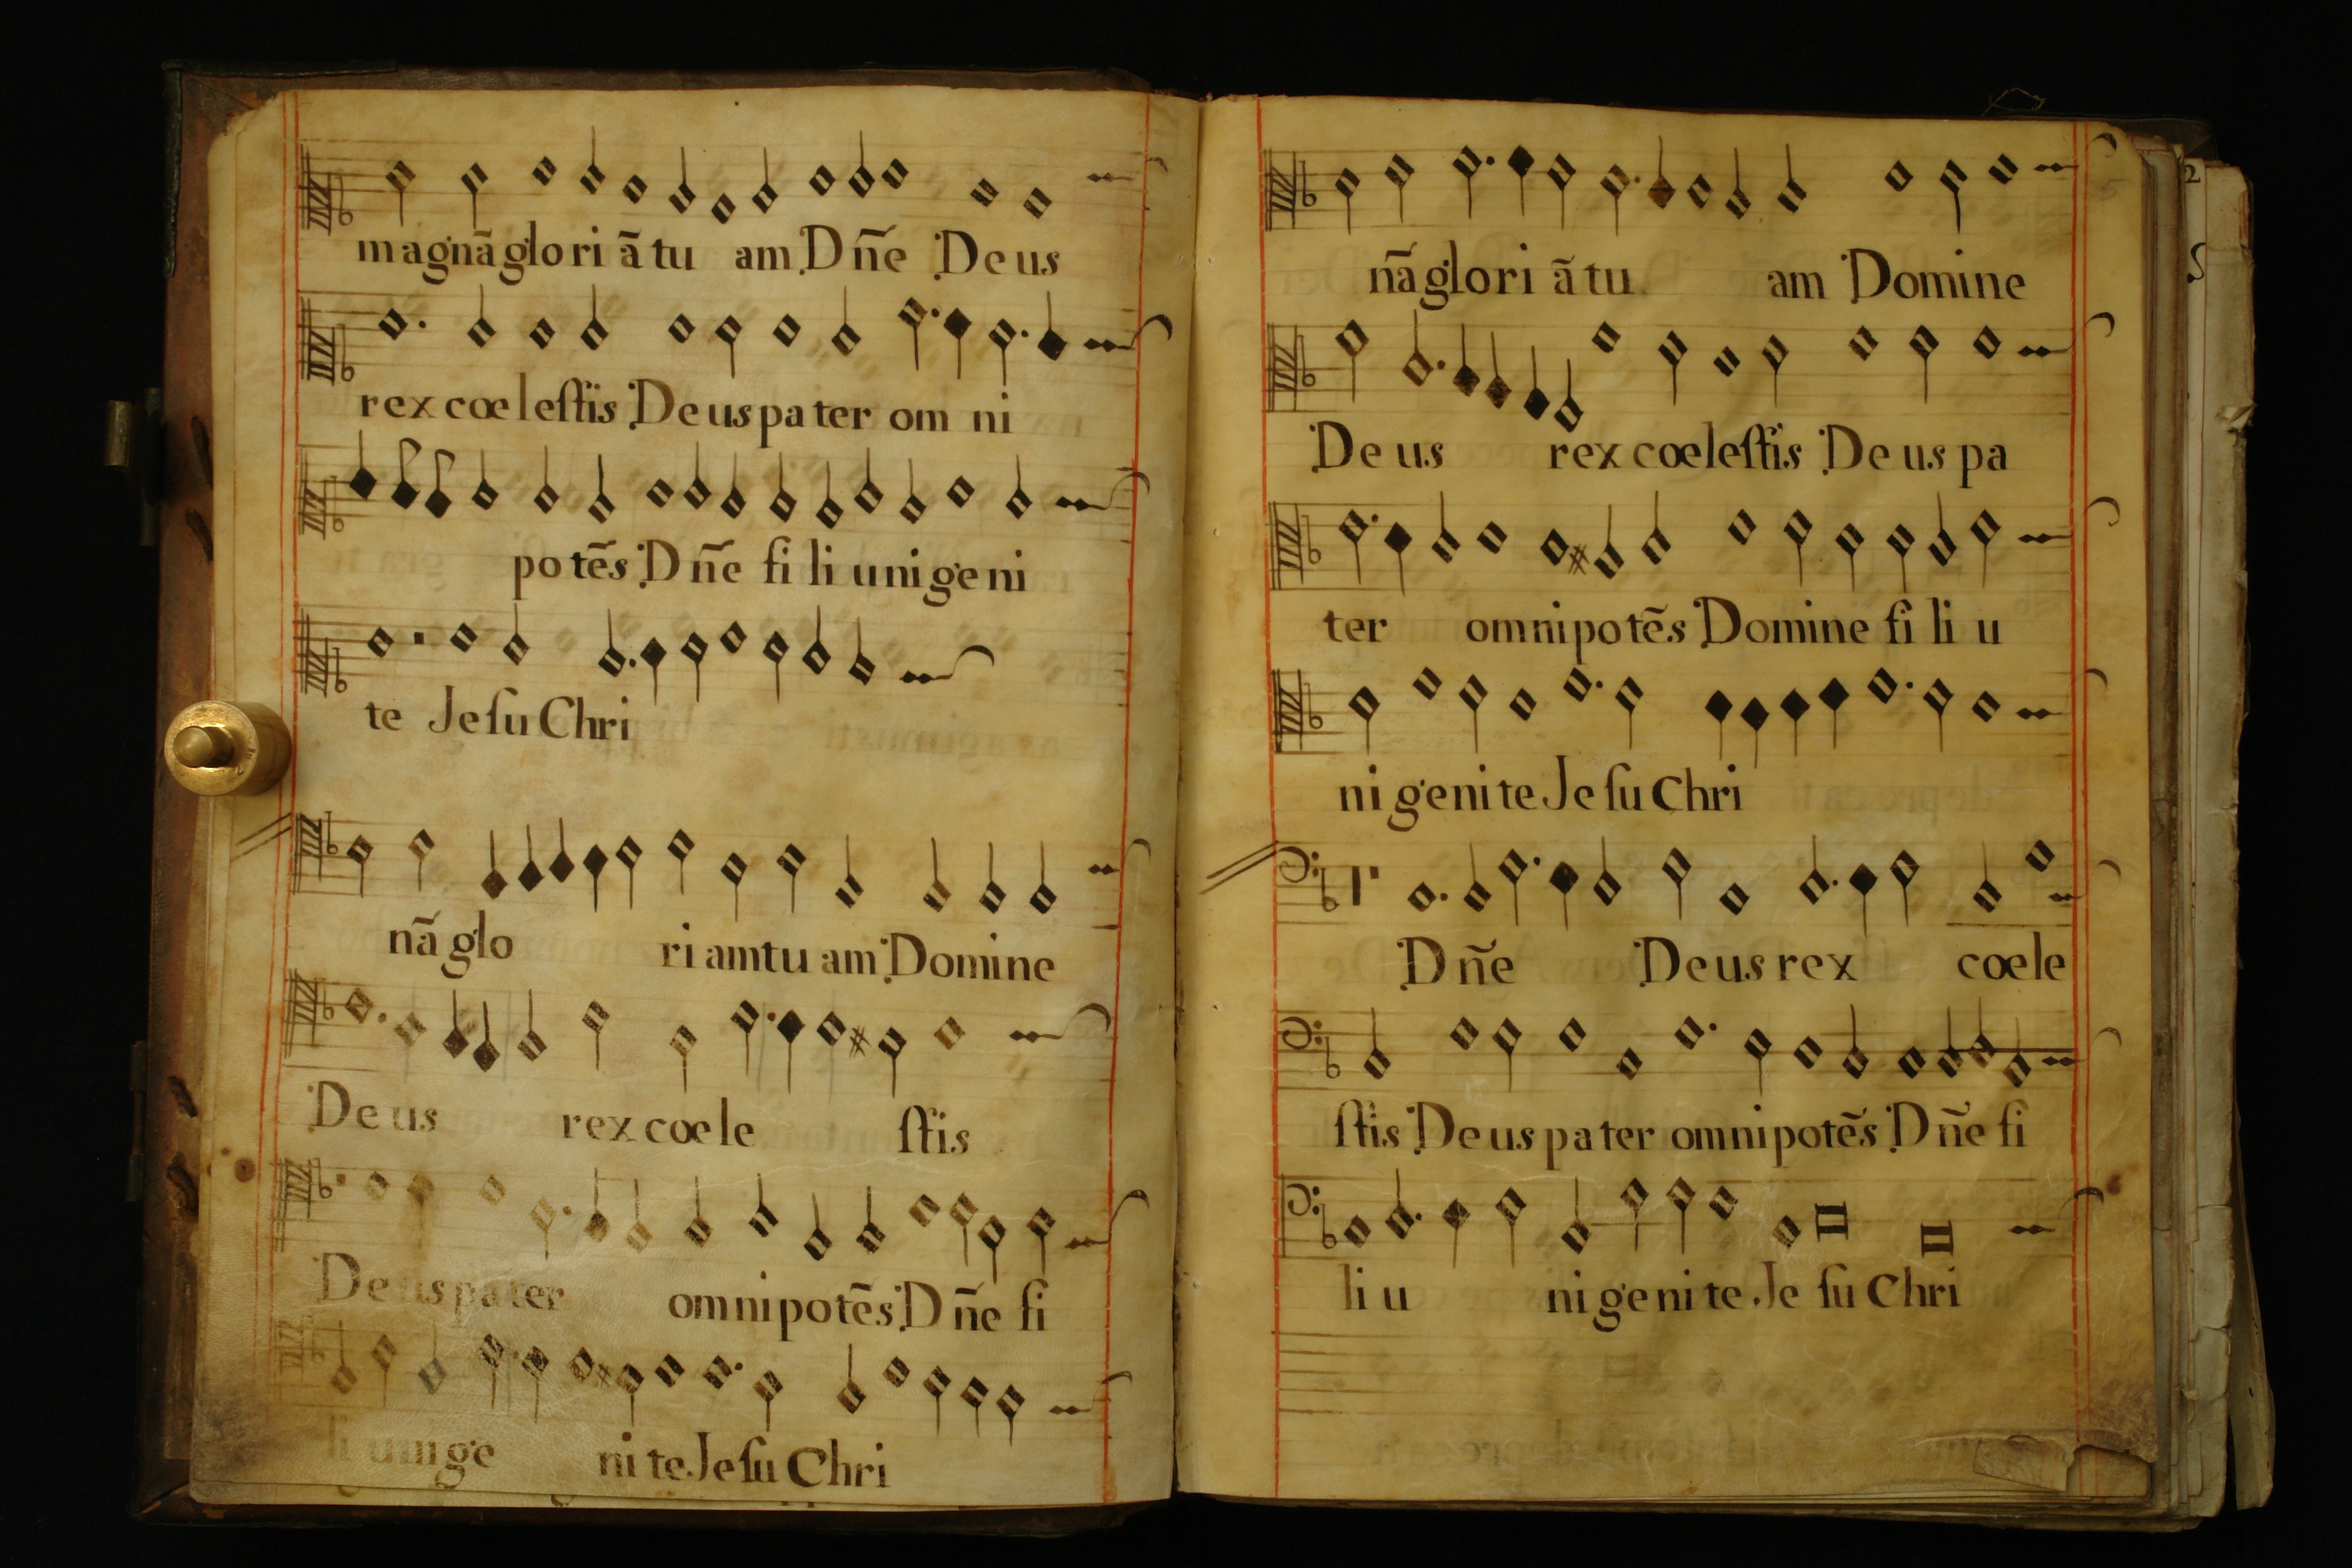 magnā glo ri ā tu am Dn̄e De us
rex coe le ſtis De us pa ter om ni
po tēs Dn̄e fi li u ni ge ni
te Je ſu Chri
nā glo ri am tu am Domine
De us rex coe le ſtis
De us pa ter omnipotēs Dn̄e fi
li u ni ge ni te Je ſu Chri
nā glo ri ā tu am Domine
De us rex coeleſtis De us pa
ter omnipotēs Domine fi li u
ni ge ni te Je ſu Chri
Dn̄e De us rex coe le
ſtis De us pa ter omnipotēs Dn̄e fi
li u ni ge ni te Je ſu Chri